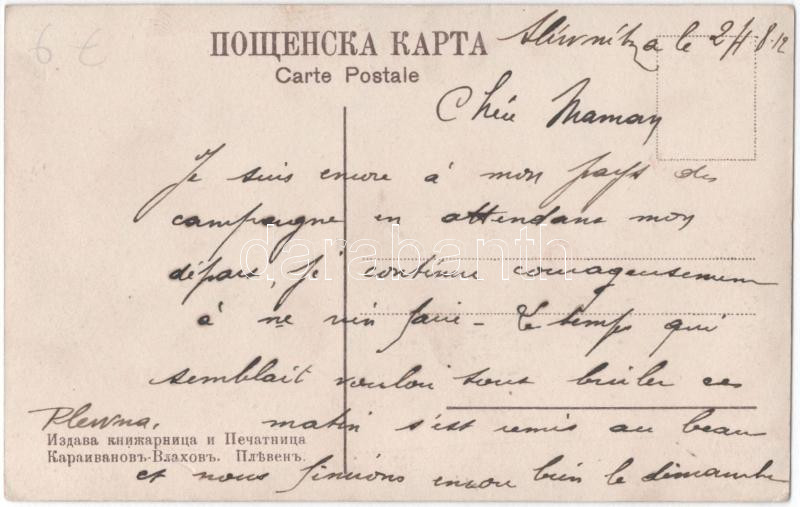 6 €
ПОЩЕНСКА КАРТА
Carte Postale
Sliwnitza le 24 8.12
Chère Maman
Je suis encore à mon pays des
campagne en attendant mon
départ, je continue courageusement
à ne rien faire - Le temps qui
semblait vouloir tous bruler ces
matin s'est remis au beau
et nous finirons encore bien le dimanche
Plewna.
Издава книжарница и Печатница
Караивановъ-Влаховъ. Плѣвенъ.
darabanth